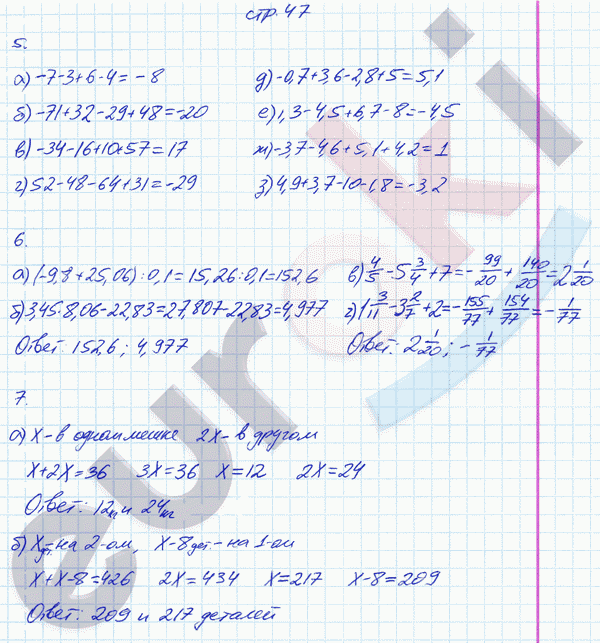 стр. 47
5.
а) -7-3+6-4=-8
д) -0,7+3,6-2,8+5=5,1
б) -71+32-29+48=-20
е) 1,3-4,5+6,7-8=-4,5
в) -34-16+10+57=17
ж) -3,7-4,6+5,1+4,2=1
г) 52-48-64+31=-29
з) 4,9+3,7-10-1,8=-3,2
6.
а) (-9,8+25,06):0,1=15,26:0,1=152,6
в) 4/5-5 3/4+7=-99/20+140/20=2 1/20
б) 3,45·8,06-22,83=27,807-22,83=4,977
г) 1 3/11-3 2/7+2=-155/77+154/77=-1/77
Ответ: 152,6; 4,977
Ответ: 2 1/20; -1/77
7.
а) X-в одном мешке 2X-в другом
X+2X=36 3X=36 X=12 2X=24
Ответ: 12кг и 24кг
б) X дет.-на 2-ом, X-8 дет.-на 1-ом
X+X-8=426 2X=434 X=217 X-8=209
Ответ: 209 и 217 деталей
euroki